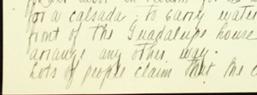 for a calsada; to carry water
front of the Guadalupe house
arrange any other way.
Lots of people claim that the c